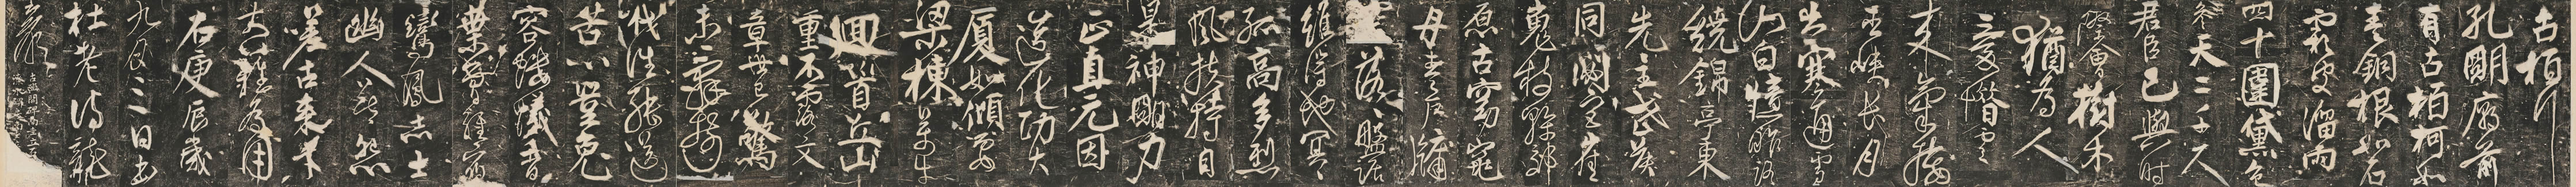 古柏行
孔明廟前
有古柏柯如
青銅根如石
霜皮溜雨
四十圍黛色
參天二千尺
君臣已與時
際會樹木
猶為人
愛惜雲
來氣接
巫峽長月
出寒通雪
山白憶昨路
繞錦亭東
先主武侯
同閟宮崔
嵬枝幹郊
原古窈窕
丹青戶牖
空落落盤踞
雖得地冥冥
孤高多烈
風扶持自
是神明力
正直元因
造化功大
廈如傾要
梁棟萬牛
迴首丘山
重不露文
章世已驚
未辭翦
伐誰能送
苦心豈免
容螻蟻香
葉曾經宿
鸞鳳志士
幽人莫怨
嗟古來材
大難為用
右庚辰歲
九月三日書
杜老詩龍
嵓